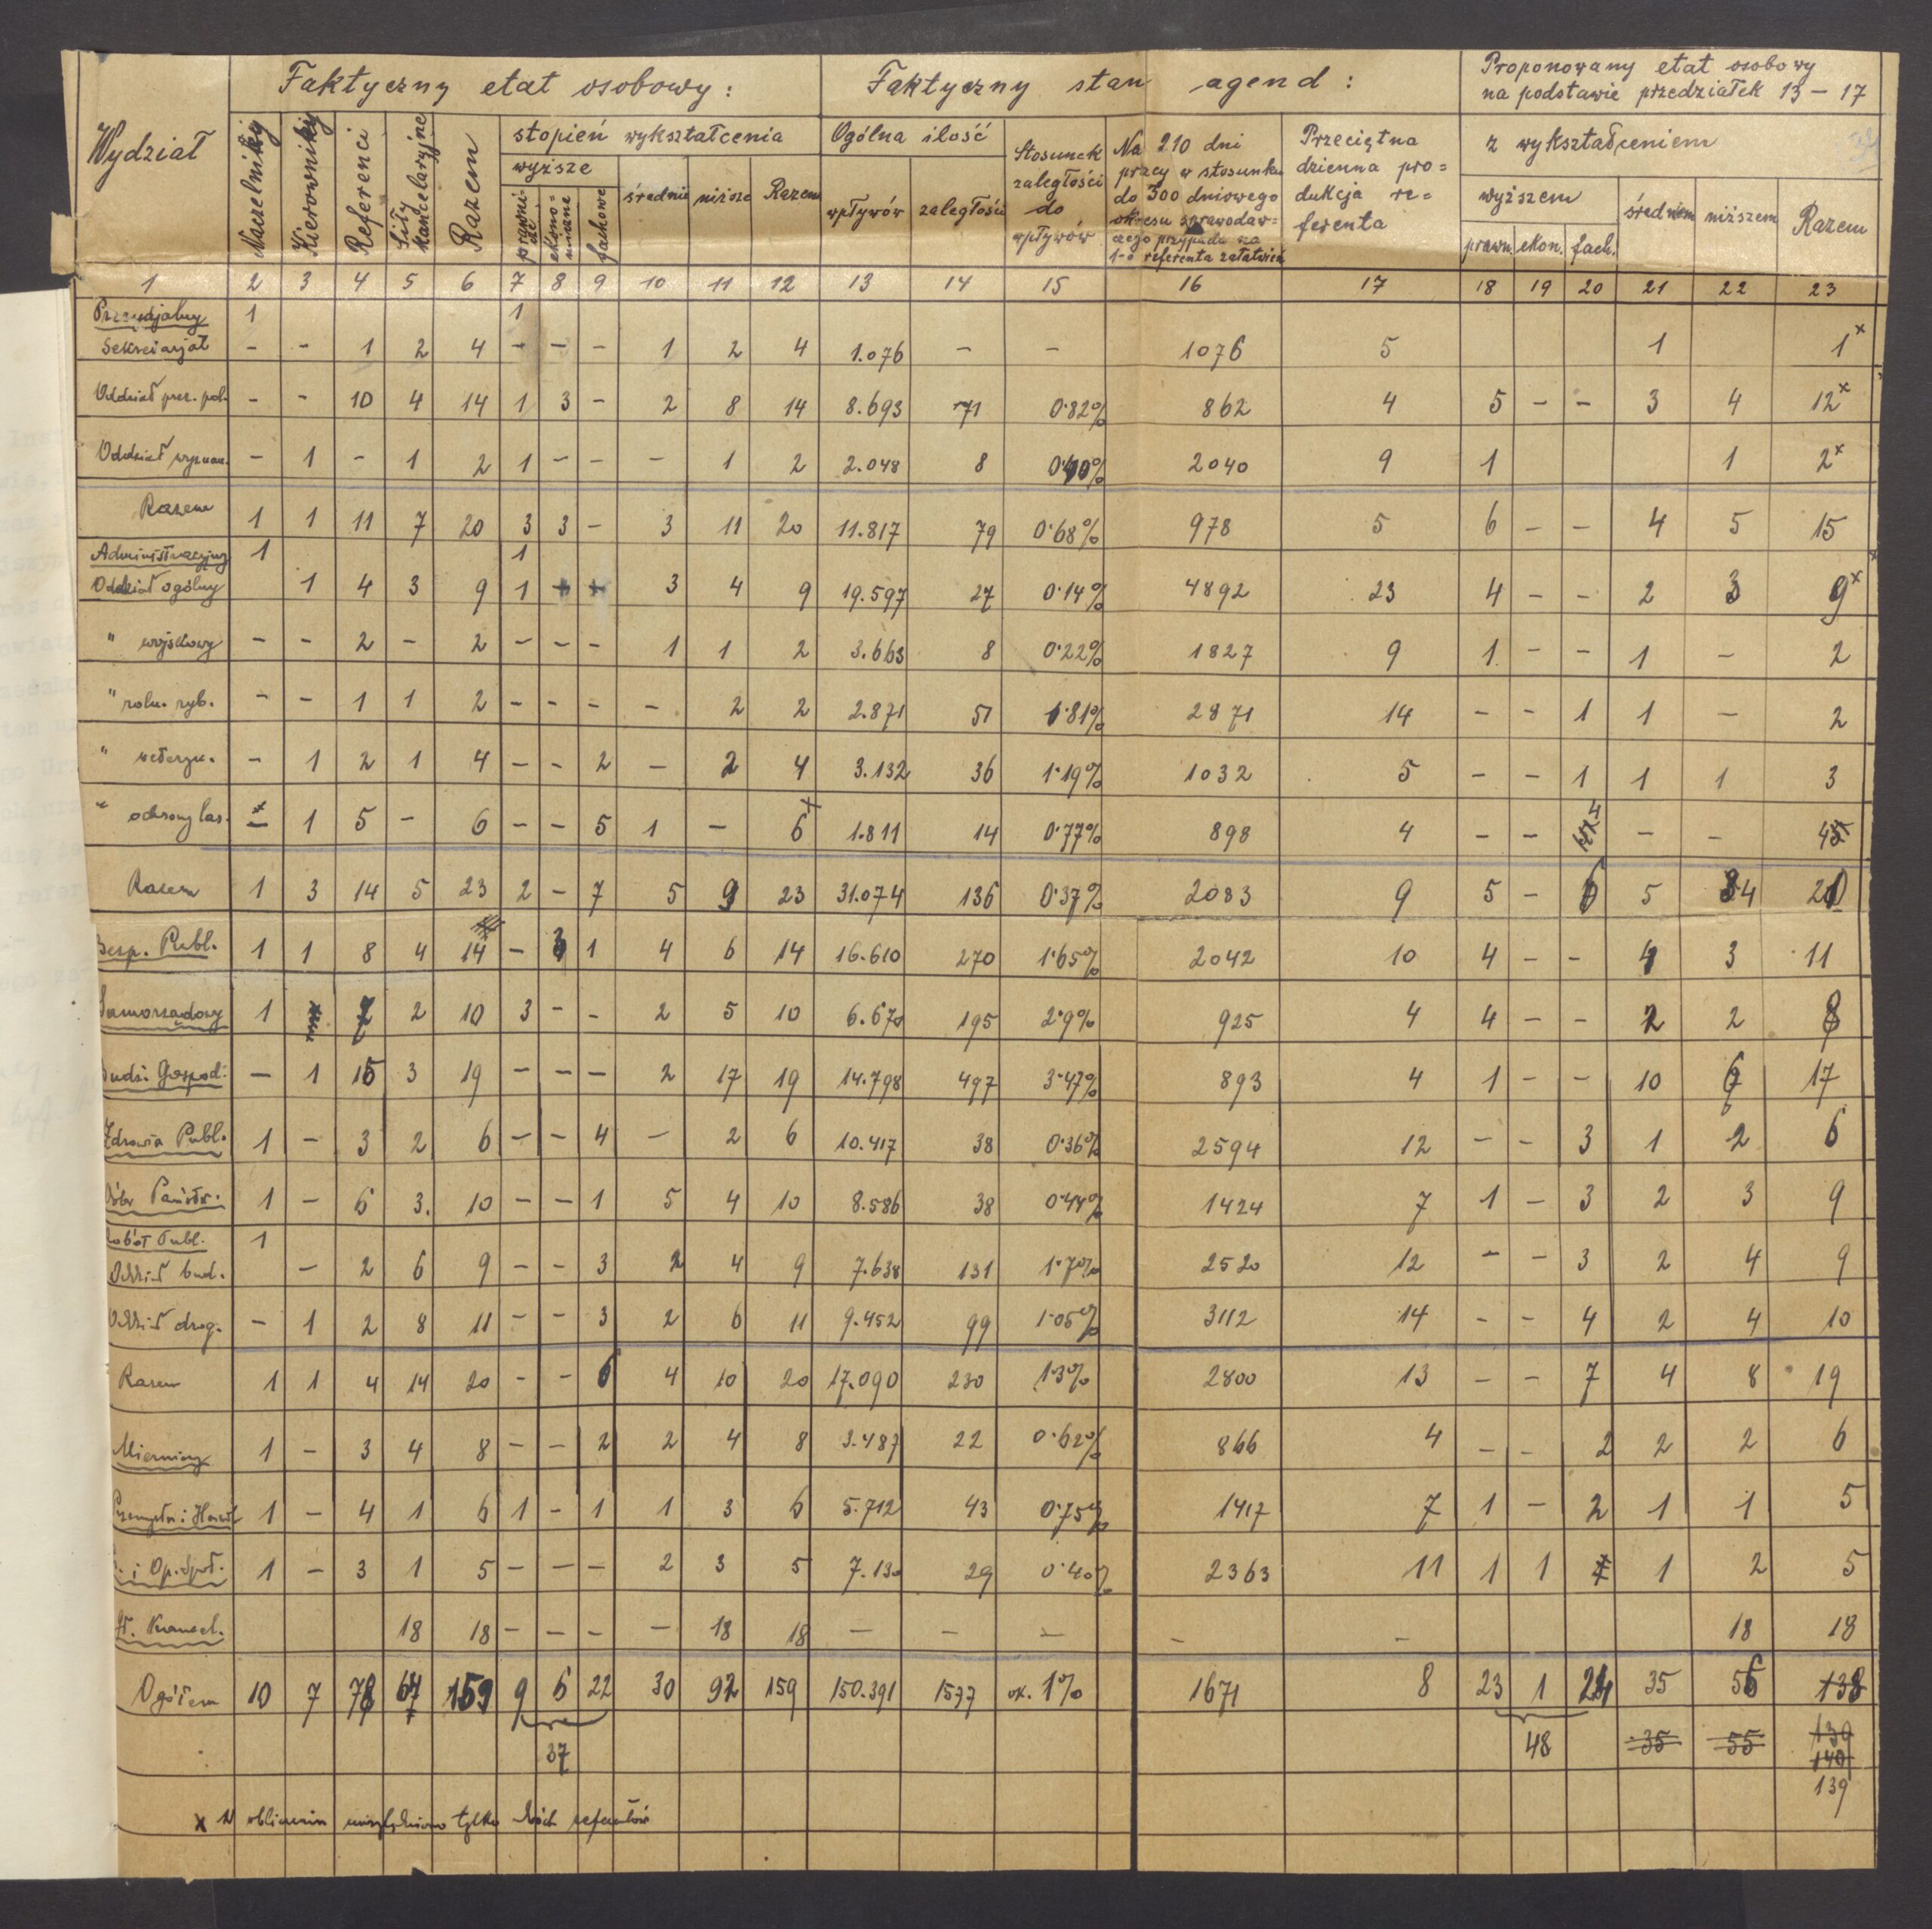 Wydział
Faktyczny etat osobowy :
Faktyczny stan agend :
Proponowany etat osobowy
na podstawie przedziałek 13 – 17
Naczelnicy Kierownicy Referenci Siły kancelaryjne Razem
stopień wykształcenia
wyższe
prawnicze ekonomiczne fachowe średnie niższe Razem
Ogólna ilość
wpływów zaległości
Stosunek
zaległości
do
wpływów
Na 210 dni
pracy w stosunku
do 300 dniowego
okresu sprawodaw=
czego przypada na
1-o referenta załatwień
Przeciętna
dzienna pro=
dukcja re=
ferenta
z wykształceniem
wyższem średniem niższem Razem
prawn. ekon. fach.
1 2 3 4 5 6 7 8 9 10 11 12 13 14 15 16 17 18 19 20 21 22 23
Prezydjalny 1 1
Sekretarjat – – 1 2 4 – – – 1 2 4 1.076 – – 1076 5 1 1x
Oddział prez. pol. – – 10 4 14 1 3 – 2 8 14 8.693 71 0·82% 862 4 5 – – 3 4 12x
Oddział wyznan. – 1 – 1 2 1 – – – 1 2 2.048 8 0·40% 2040 9 1 1 2x
Razem 1 1 11 7 20 3 3 – 3 11 20 11.817 79 0·68% 978 5 6 – – 4 5 15
Administracyjny 1 1
Oddział ogólny 1 4 3 9 1 3 4 9 19.597 27 0·14% 4892 23 4 – – 2 3 9x
" wojskowy – – 2 – 2 – – – 1 1 2 3.663 8 0·22% 1827 9 1 – – 1 – 2
" roln. ryb. – – 1 1 2 – – – – 2 2 2.871 51 1·81% 2871 14 – – 1 1 – 2
" weteryn. – 1 2 1 4 – – 2 – 2 4 3.132 36 1·19% 1032 5 – – 1 1 1 3
" ochrony las. – 1 5 – 6 – – 5 1 – 6x 1.811 14 0·77% 898 4 – – 4 – – 4
Razem 1 3 14 5 23 2 – 7 5 9 23 31.074 136 0·37% 2083 9 5 – 6 5 4 20
Bezp. Publ. 1 1 8 4 14 – 3 1 4 6 14 16.610 270 1·65% 2042 10 4 – – 4 3 11
Samorządowy 1 7 2 10 3 – – 2 5 10 6.670 195 2·9% 925 4 4 – – 2 2 8
Budż. Gospod. – 1 15 3 19 – – – 2 17 19 14.798 497 3·47% 893 4 1 – – 10 6 17
Zdrowia Publ. 1 – 3 2 6 – – 4 – 2 6 10.417 38 0·36% 2594 12 – – 3 1 2 6
Dóbr Państw. 1 – 6 3. 10 – – 1 5 4 10 8.586 38 0·44% 1424 7 1 – 3 2 3 9
Robót Publ. 1
Oddział bud. – 2 6 9 – – 3 2 4 9 7.638 131 1·70% 2520 12 – – 3 2 4 9
Oddział drog. – 1 2 8 11 – – 3 2 6 11 9.452 99 1·05% 3112 14 – – 4 2 4 10
Razem 1 1 4 14 20 – – 6 4 10 20 17.090 230 1·3% 2800 13 – – 7 4 8 19
Mierniczy 1 – 3 4 8 – – 2 2 4 8 3.487 22 0·62% 866 4 – – 2 2 2 6
Przemysłu i Handl. 1 – 4 1 6 1 – 1 1 3 6 5.712 43 0·75% 1417 7 1 – 2 1 1 5
i Op. Społ. 1 – 3 1 5 – – – 2 3 5 7.130 29 0·40% 2363 11 1 1 1 2 5
Kancel. 18 18 – – – – 18 18 – – – – – 18 18
Ogółem 10 7 78 64 159 9 6 22 30 92 159 150.391 1577 ok. 1% 1671 8 23 1 24 35 56 138
37 48 35 55 139
140
139
x W obliczeniu uwzględniono tylko dwóch referentów